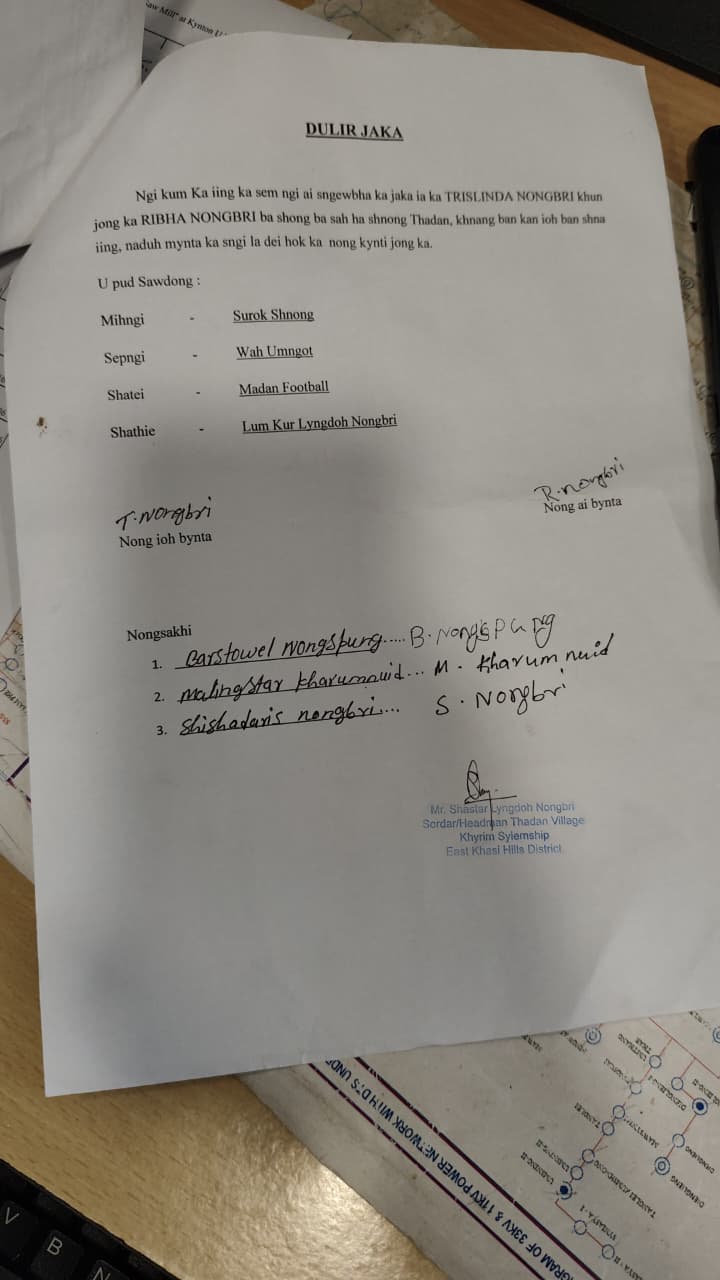 Saw Mill" at Kynton U
DULIR JAKA
Ngi kum Ka iing ka sem ngi ai sngewbha ka jaka ia ka TRISLINDA NONGBRI khun
jong ka RIBHA NONGBRI ba shong ba sah ha shnong Thadan, khnang ban kan ioh ban shna
iing, naduh mynta ka sngi la dei hok ka nong kynti jong ka.
U pud Sawdong :
Mihngi - Surok Shnong
Sepngi - Wah Umngot
Shatei - Madan Football
Shathie - Lum Kur Lyngdoh Nongbri
T. Nongbri
Nong ioh bynta
R. nongbri
Nong ai bynta
Nongsakhi
1. Barstowel Nongspung..... B. Nongspung
2. Malingstar Kharumnuid... M. Kharumnuid
3. Shishadaris nongbri.... S. Nongbri
Mr. Shastar Lyngdoh Nongbri
Sordar/Headman Thadan Village
Khyrim Syiemship
East Khasi Hills District
GRAM OF 33KV & 11KV POWER NETWORK WITH D'S UNDE
V
B
N